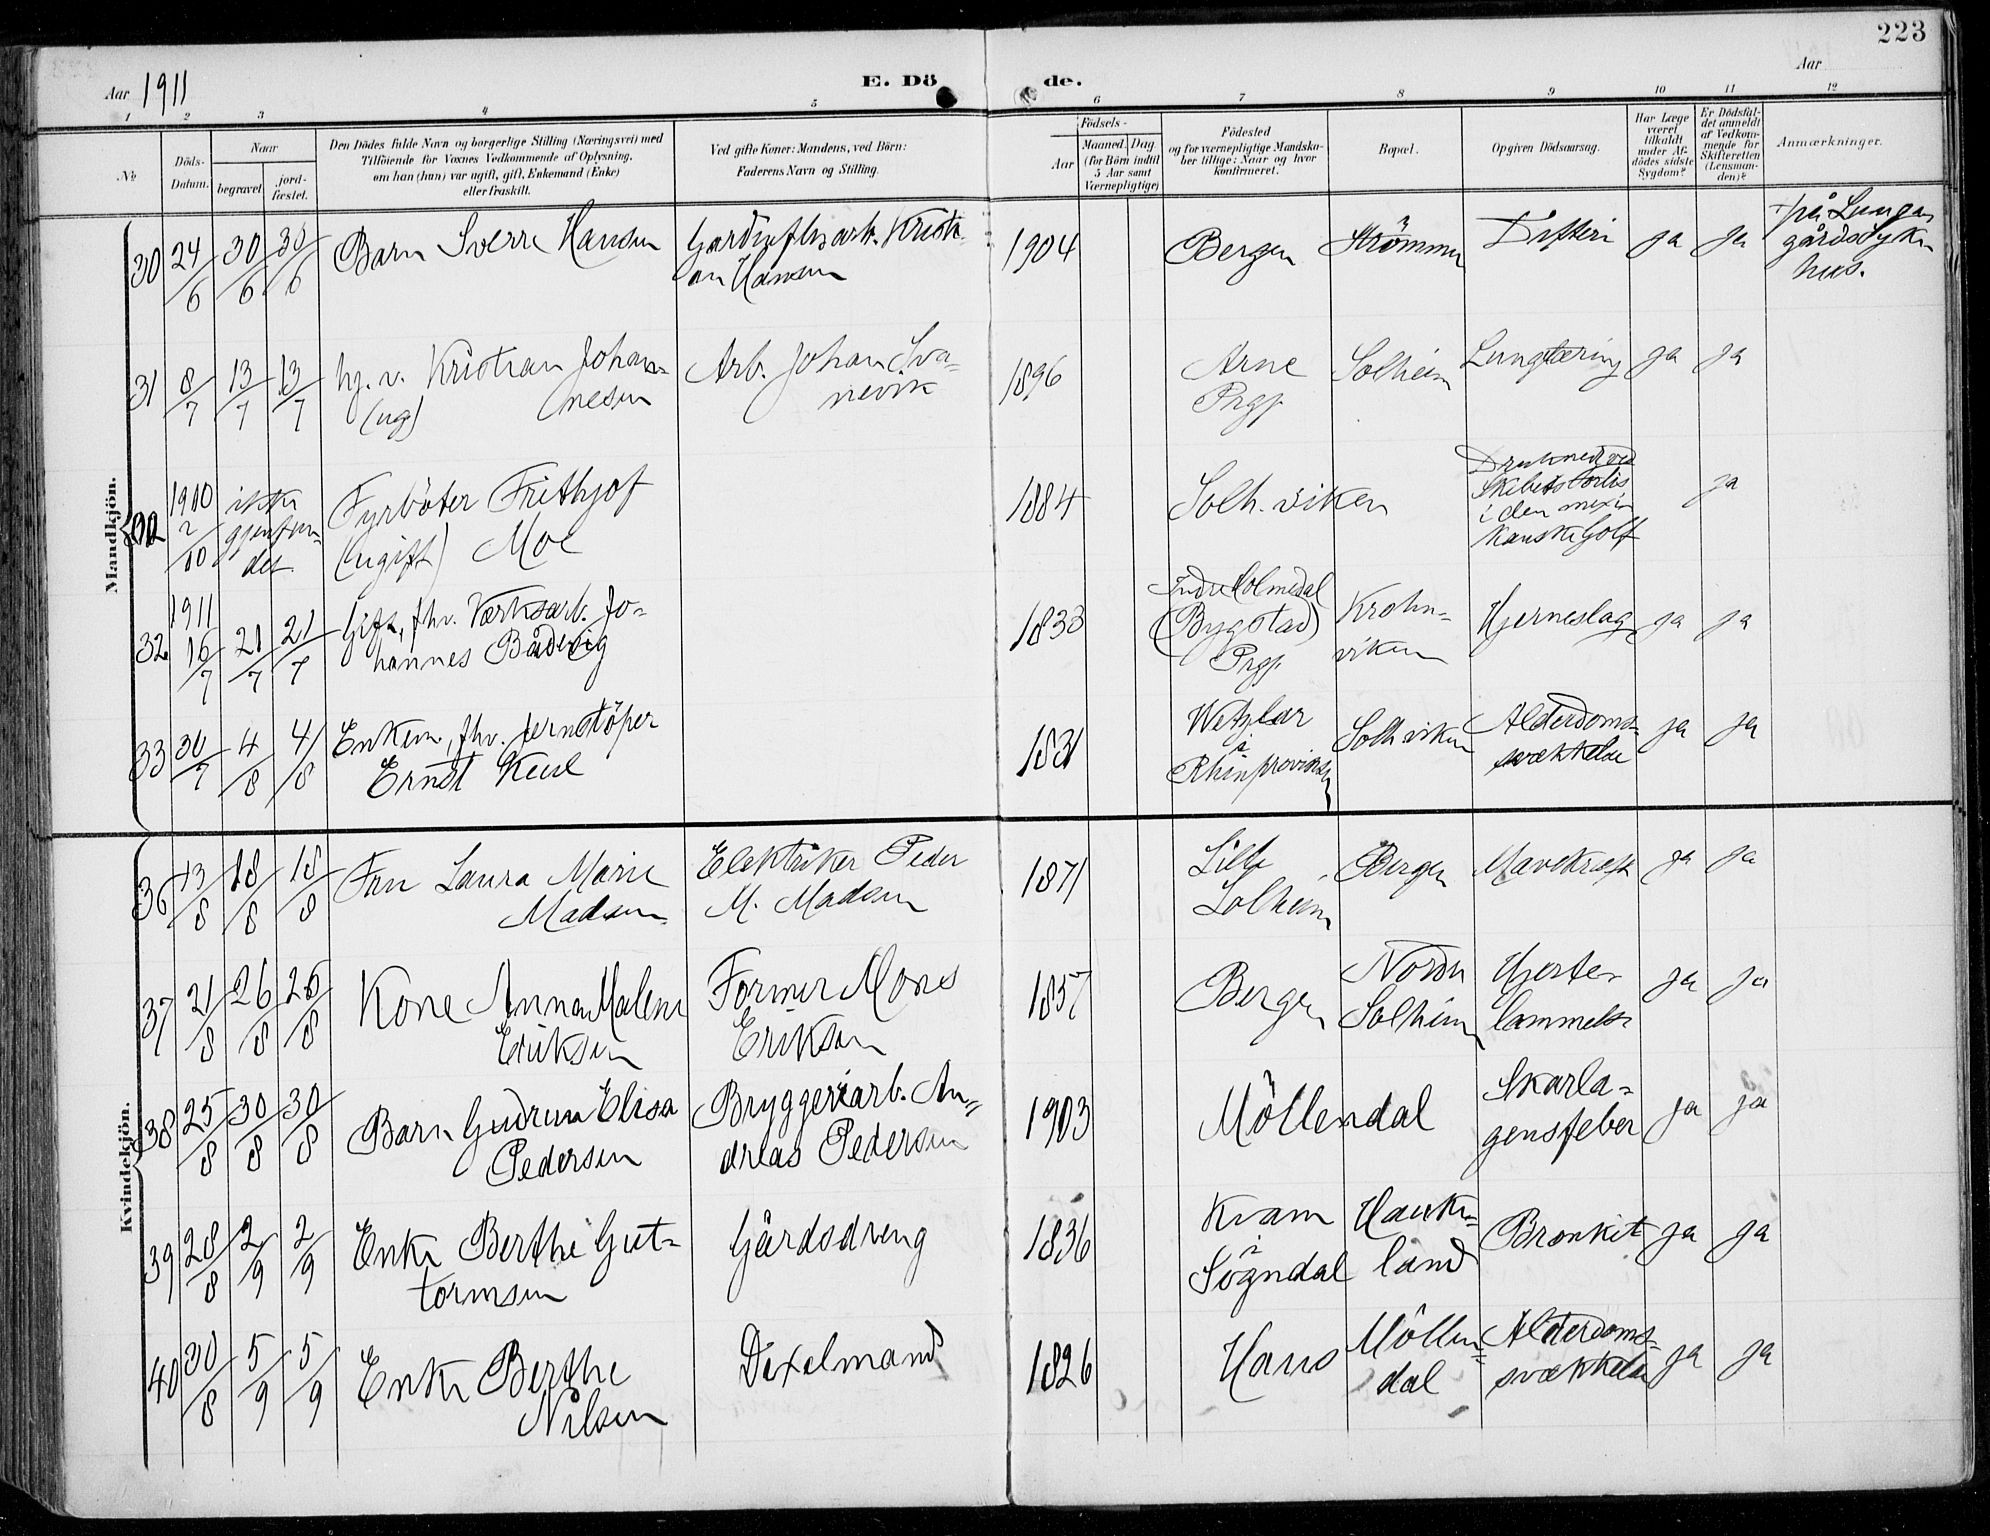 223
Aar 1911
E. Dö de.
Aar
1 2 3 4 5 6 7 8 9 10 11 12
№
Döds-
Datum.
Naar
begravet
jord-
fæstet.
Den Dödes fulde Navn og borgerlige Stilling (Næringsvei) med
Tilföiende for Voxnes Vedkommende af Oplysning,
om han (hun) var ugift, gift, Enkemand (Enke)
eller fraskilt.
Ved gifte Koner: Mandens, ved Börn:
Faderens Navn og Stilling.
Födsels-
Aar
Maaned. Dag.
(for Börn indtil
5 Aar samt
Værnepligtige)
Födested
og for værnepligtige Mandska-
ber tillige: Naar og hvor
konfirmeret.
Bopæl.
Opgiven Dödsaarsag.
Har Læge
været
tilkaldt
under Af-
dödes sidste
Sygdom?
Er Dödsfal-
det anmeldt
af Vedkom-
mende for
Skifteretten
(Lensman-
den)?
Anmærkninger.
Mandkjön.
30 24/6 30/6 30/6 Barn Sverre Hansen
an Hansen
1904 Bergen Strömmen Difteri ja ja
på Lunge
gårdssyke
hus.
31 8/7 13/7 13/7 hj. v. Kristian Johan-
nesen
(ug)
Arb. Johan Sva-
nevik
1896 Arne
Prgj.
Solheim Lungtæring ja ja
1910
2/10
ikke
gjenfun-
det
Fyrböter Frithjof
(ugift) Moe
1884 Solh. viken
Druknet ved
Skibets forlis
i den mexi
kanske Golf
ja
1911
32 16/7 21/7 21/7 Gift, fhv. Værksarb. Jo-
hannes Bådsvig
1833 Indre Holmedal
(Bygstad)
Prgj.
Krohn-
viken
Hjerneslag ja ja
33 30/7 4/8 4/8 Enkem., fhv. Jernstöper
Ernst Keul
1831 Wetzlar
i
Rhinprovinsen
Solh viken Alderdoms-
svækkelse
ja ja
Kvindekjön.
36 13/8 18/8 18/8 Fru Laura Marie
Madsen
Elektriker Peder
M. Madsen
1871 Lille
Solheim
Bergen Mavekræft ja ja
37 21/8 26/8 26/8 Kone Anna Malene
Eriksen
Former Mons
Eriksen
1857 Bergen Nordre
Solheim
Hjerte-
lammelse
ja ja
38 25/8 30/8 30/8 Barn Gudrun Elisa
Pedersen
Bryggeriarb. An-
dreas Pedersen
1903 Möllendal Skarla-
gensfeber
ja ja
39 28/8 2/9 2/9 Enke Berthe Gut-
tormsen
Gårdsdreng
1836 Kvam
i
Sogndal
Hauke-
land
Bronkit ja ja
40 30/8 5/9 5/9 Enke Berthe
Nilsen
Dixelmand
1826 Haus Möllen-
dal
Alderdoms-
svækkelse
ja ja